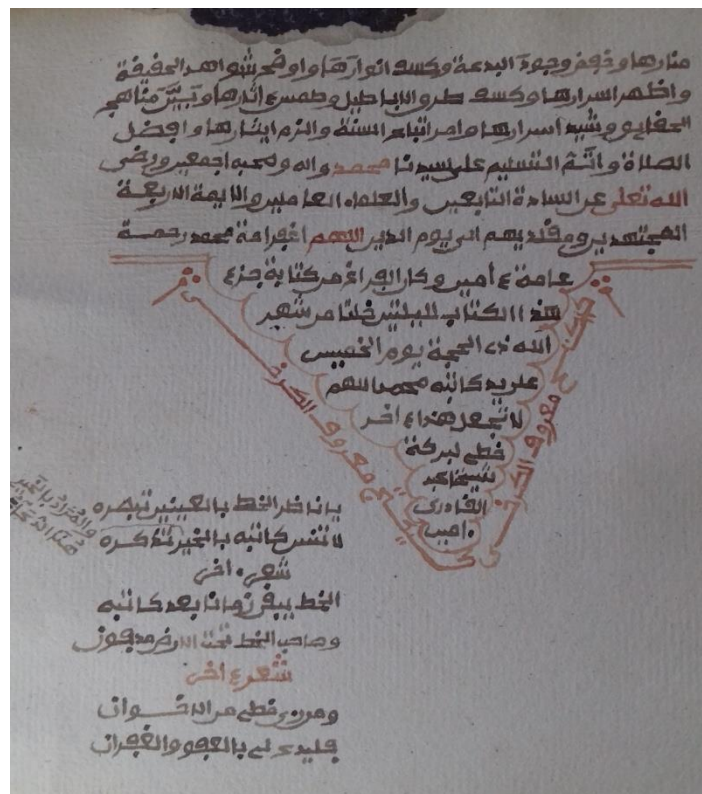 منارها وخفض وجوه البدعة وكسف انوارها واوضح شواهد الحقيقة
واظهر اسرارها وكسف طرو الاباطيل وطمس ءاثارها وبين مناهج
الحقايق وشيد اسرارها وامر اتباع السنة والزم ايثارها وافضل
الصلاة واتم التسليم على سيدنا محمد واله وصحبه اجمعين ورضى
الله تعلى عن السادة التابعين والعلماء العاملين والايمة الاربعة
المجتهدين ومقلديهم الى يوم الدين اللهم اغفر امة محمد رحمة
عامة ءامين وكان الفراغ من كتابة جزء
هذا الكتاب لليلتين خلتا من شهر
الله ذى الحجة يوم الخميس
على يد كاتبه محمد اللهم
لا تجعل هذا ءاخر
خطى لبركة
شيخنا
القادرى
ءامين
معروف الكرخى
معروف الكرخى
يا ناظر الخط بالعينين تبصره
لا تنس كاتبه بالخير تذكره
شعر ءاخر
الخط يبقى زمانا بعد كاتبه
وصاحب الخط تحت الارض مدفون
شعر ءاخر
ومن رى خطى من الاخوان
فليدع لى بالعفو والغفران
والمراد بالخير
هنا الدعاء